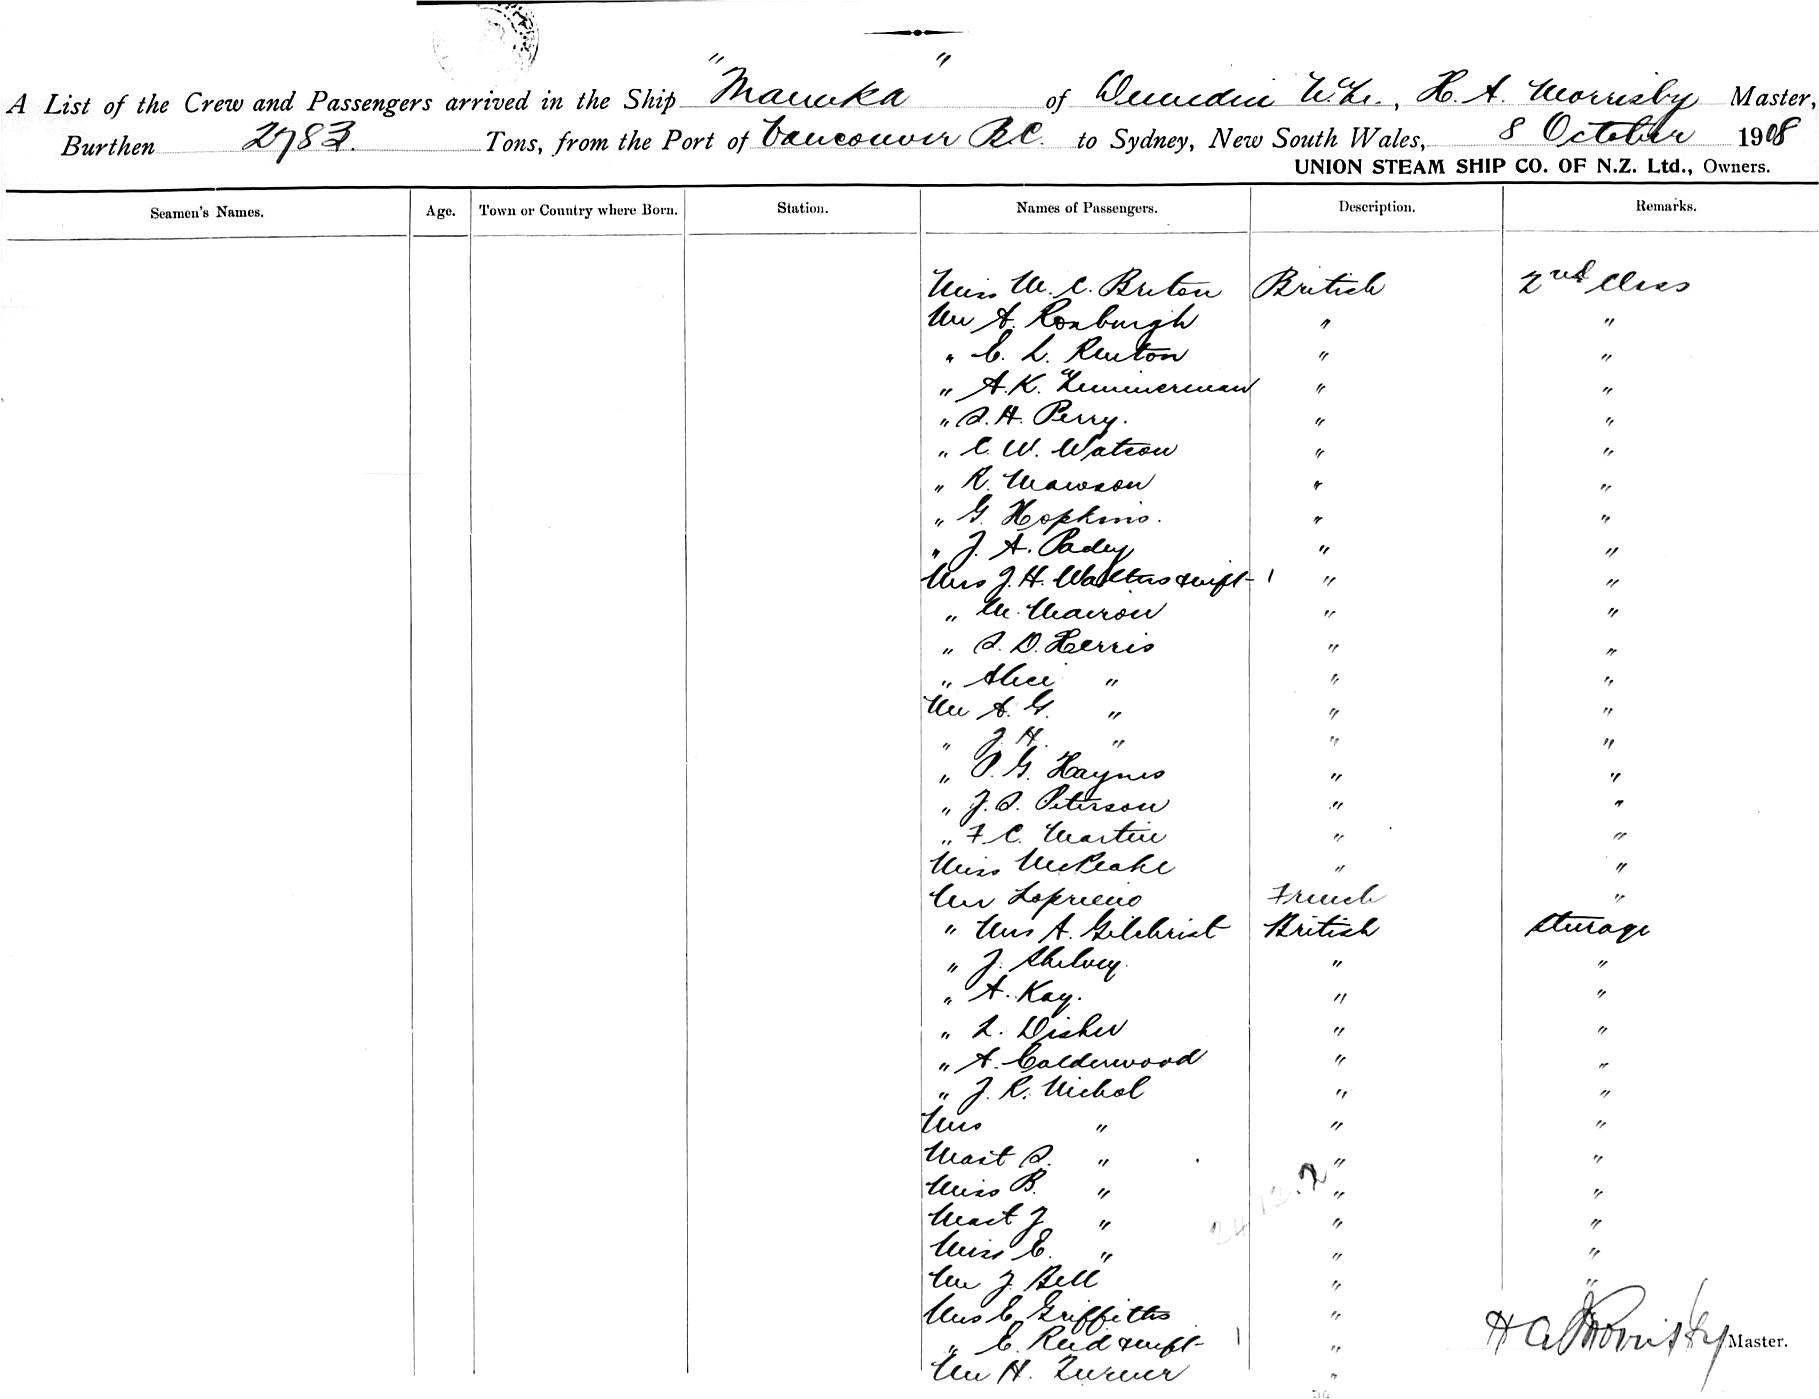 " "
A List of the Crew and Passengers arrived in the Ship Manuka of Dunedin N.Z., H. A. Morrisby Master,
Burthen 2783. Tons, from the Port of Vancouver B.C. to Sydney, New South Wales, 8 October 1908
UNION STEAM SHIP CO. OF N.Z. Ltd., Owners.
Seamen's Names. Age. Town or Country where Born. Station. Names of Passengers. Description. Remarks.
Miss M. C. Briton British 2nd Class
Mr A. Roxburgh " "
" E. L. Renton " "
" A. K. Zimmerman " "
" S. H. Perry. " "
" C. W. Watson " "
" R. Mawson " "
" G. Hopkins. " "
" J. A. Padey " "
Mrs J. H. Walters & inft 1 " "
" M. " "
" S. D. Herris " "
" Alice " " "
Mr A. G. " " "
" J. H. " " "
" P. G. Haynes " "
" J. S. Peterson " "
" F C. Martin " "
Miss McPeake " "
Mr Loprieno French "
" Mrs A. Gilchrist British Sterage
" J. Shelvey. " "
" A. Kay. " "
" L. Disher " "
" A. Calderwood " "
" J. R. Nichol " "
Mrs " " "
Mast S. " " "
Miss B. " " "
Mast J " " "
Miss E. " " "
Mr J Bell " "
Mrs E Griffiths "
" E. Reid & inft 1 "
Mr H. Turner "
H A Morrisby Master.